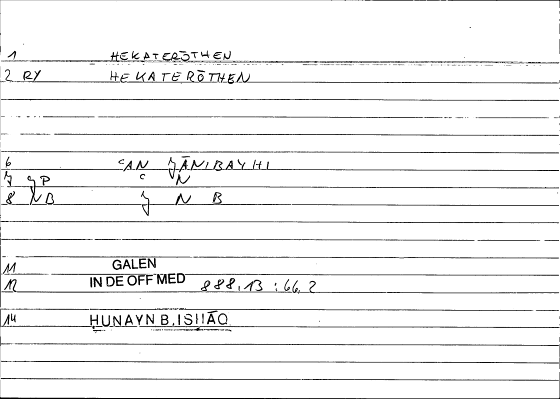 1 HEKATERŌTHEN
2 RY HEKATERŌTHEN
6 ʿAN ǦĀNIBAYHI
7 ǦP ʿ N
8 NB Ǧ N B
11 GALEN
12 IN DE OFF MED 888,13 : 66,2
14 HUNAYN B. ISḤĀQ